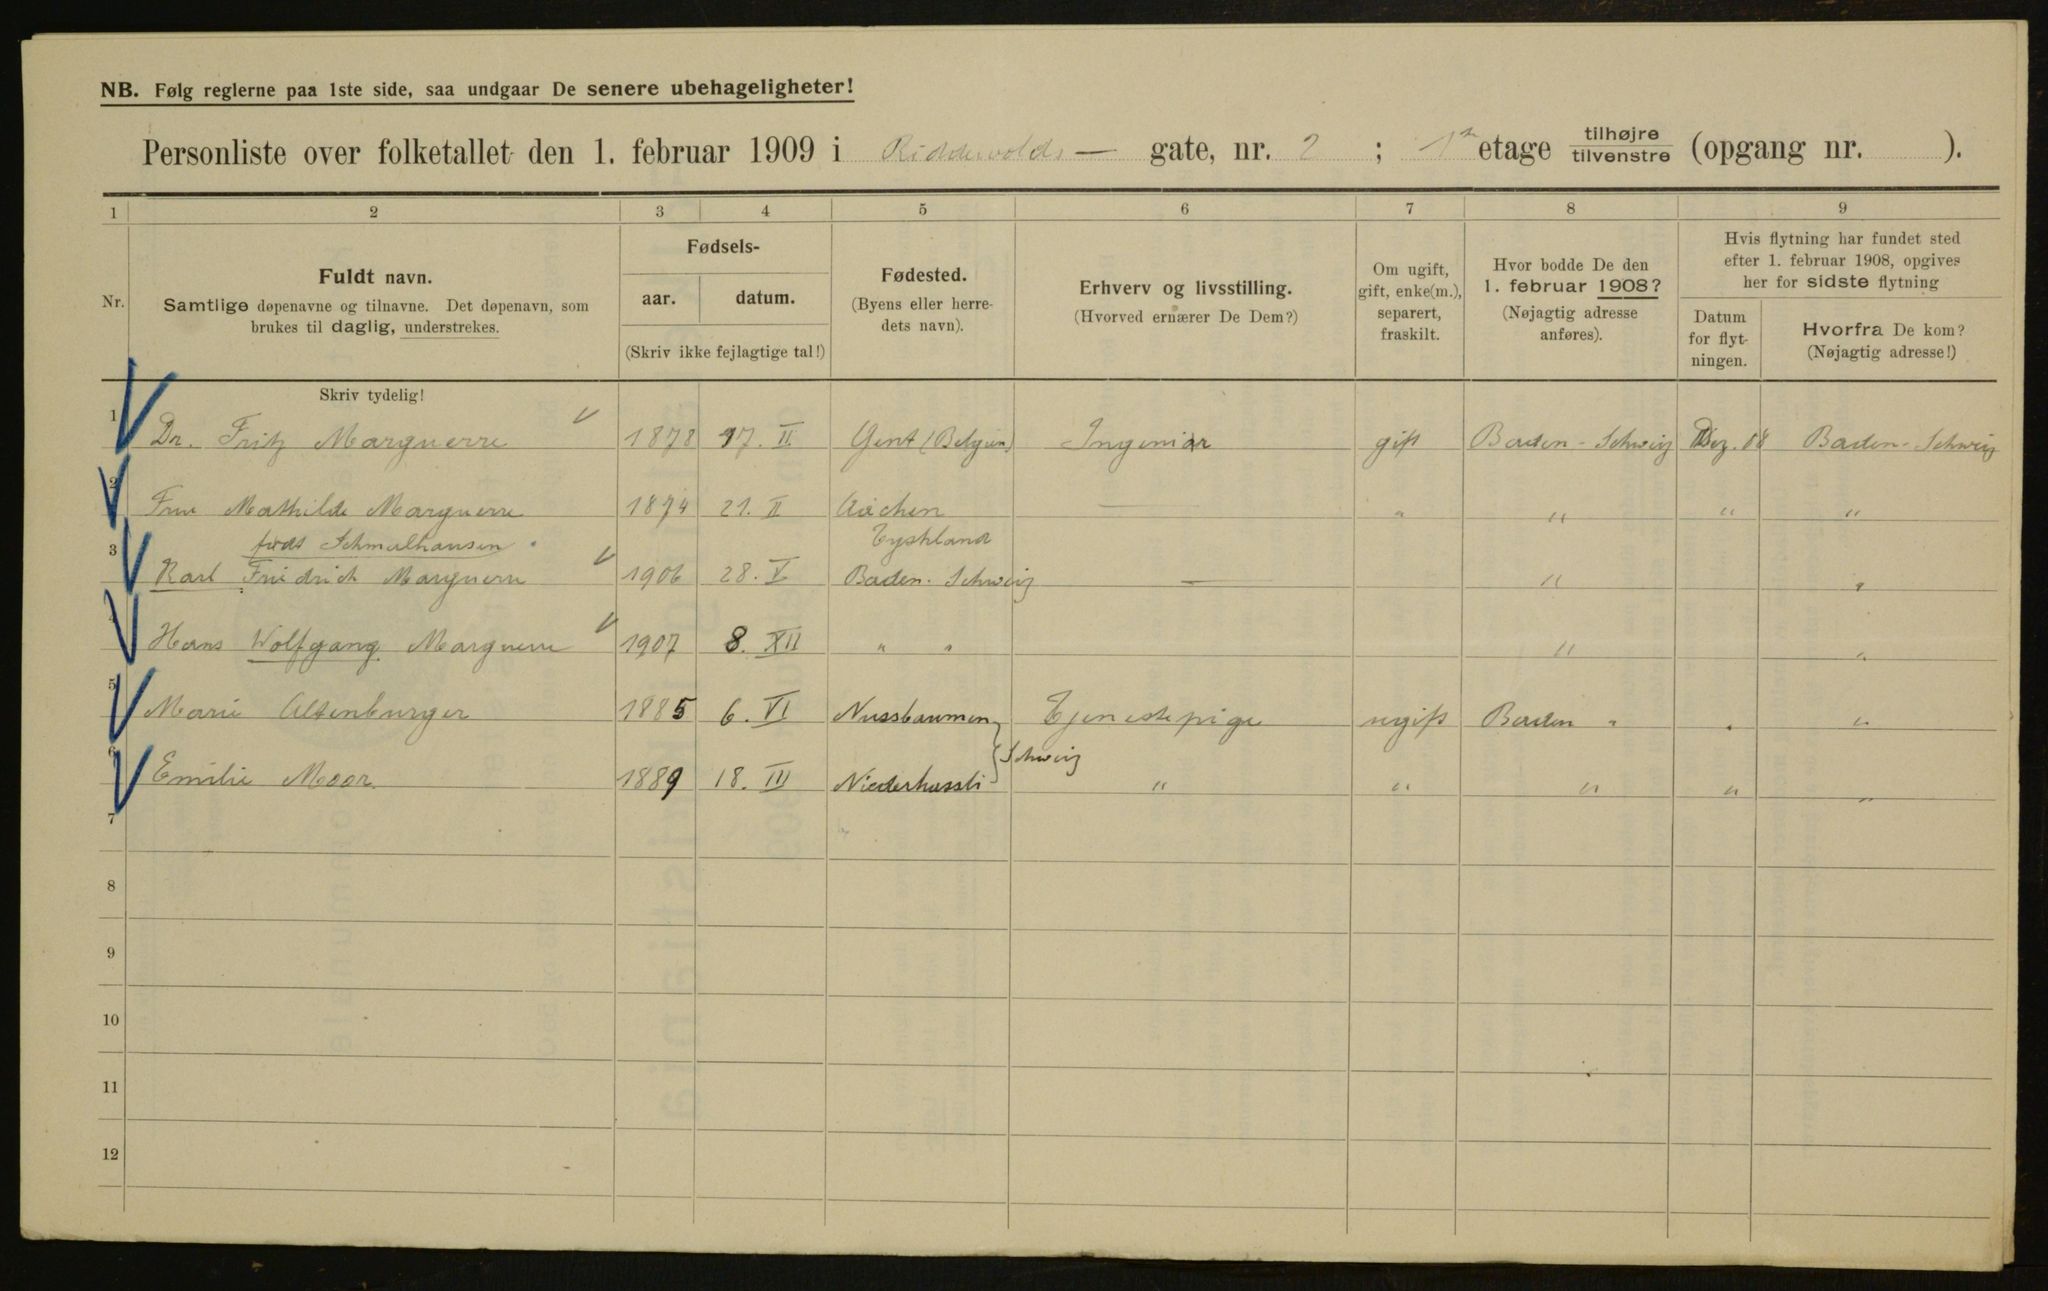 NB. Følg reglerne paa 1ste side, saa undgaar De senere ubehageligheter!
Personliste over folketallet den 1. februar 1909 i Riddervolds — gate, nr. 2 ; 1ste etage tilhøjre tilvenstre (opgang nr. ).
1 2 3 4 5 6 7 8 9
Nr.
Fuldt navn.
Samtlige døpenavne og tilnavne. Det døpenavn, som
brukes til daglig, understrekes.
Fødsels-
aar. datum.
(Skriv ikke fejlagtige tal!)
Fødested.
(Byens eller herre-
dets navn).
Erhverv og livsstilling.
(Hvorved ernærer De Dem?)
Om ugift,
gift, enke(m.),
separert,
fraskilt.
Hvor bodde De den
1. februar 1908?
(Nøjagtig adresse
anføres).
Hvis flytning har fundet sted
efter 1. februar 1908, opgives
her for sidste flytning
Datum
for flyt-
ningen.
Hvorfra De kom?
(Nøjagtig adresse!)
Skriv tydelig!
1 Dr. Fritz Marguerre 1878 17. II Gent (Belgien) Ingeniør gift Baden - Schweiz Dez. 08 Baden - Schweiz
2 Frue Mathilde Marguerre 1874 21. II Aachen — " " " "
født Schmalhausen Tyskland
3 Karl Friedrich Marguerre 1906 28. V Baden - Schweiz — " "
4 Hans Wolfgang Marguerre 1907 8. XII " " " "
5 Marie Altenburger 1885 6. VI Nussbaumen Tjenestepige ugift Baden " " "
Schweiz
6 Emilie Moor 1889 18. III Niederhassli " " " " "
7
8
9
10
11
12